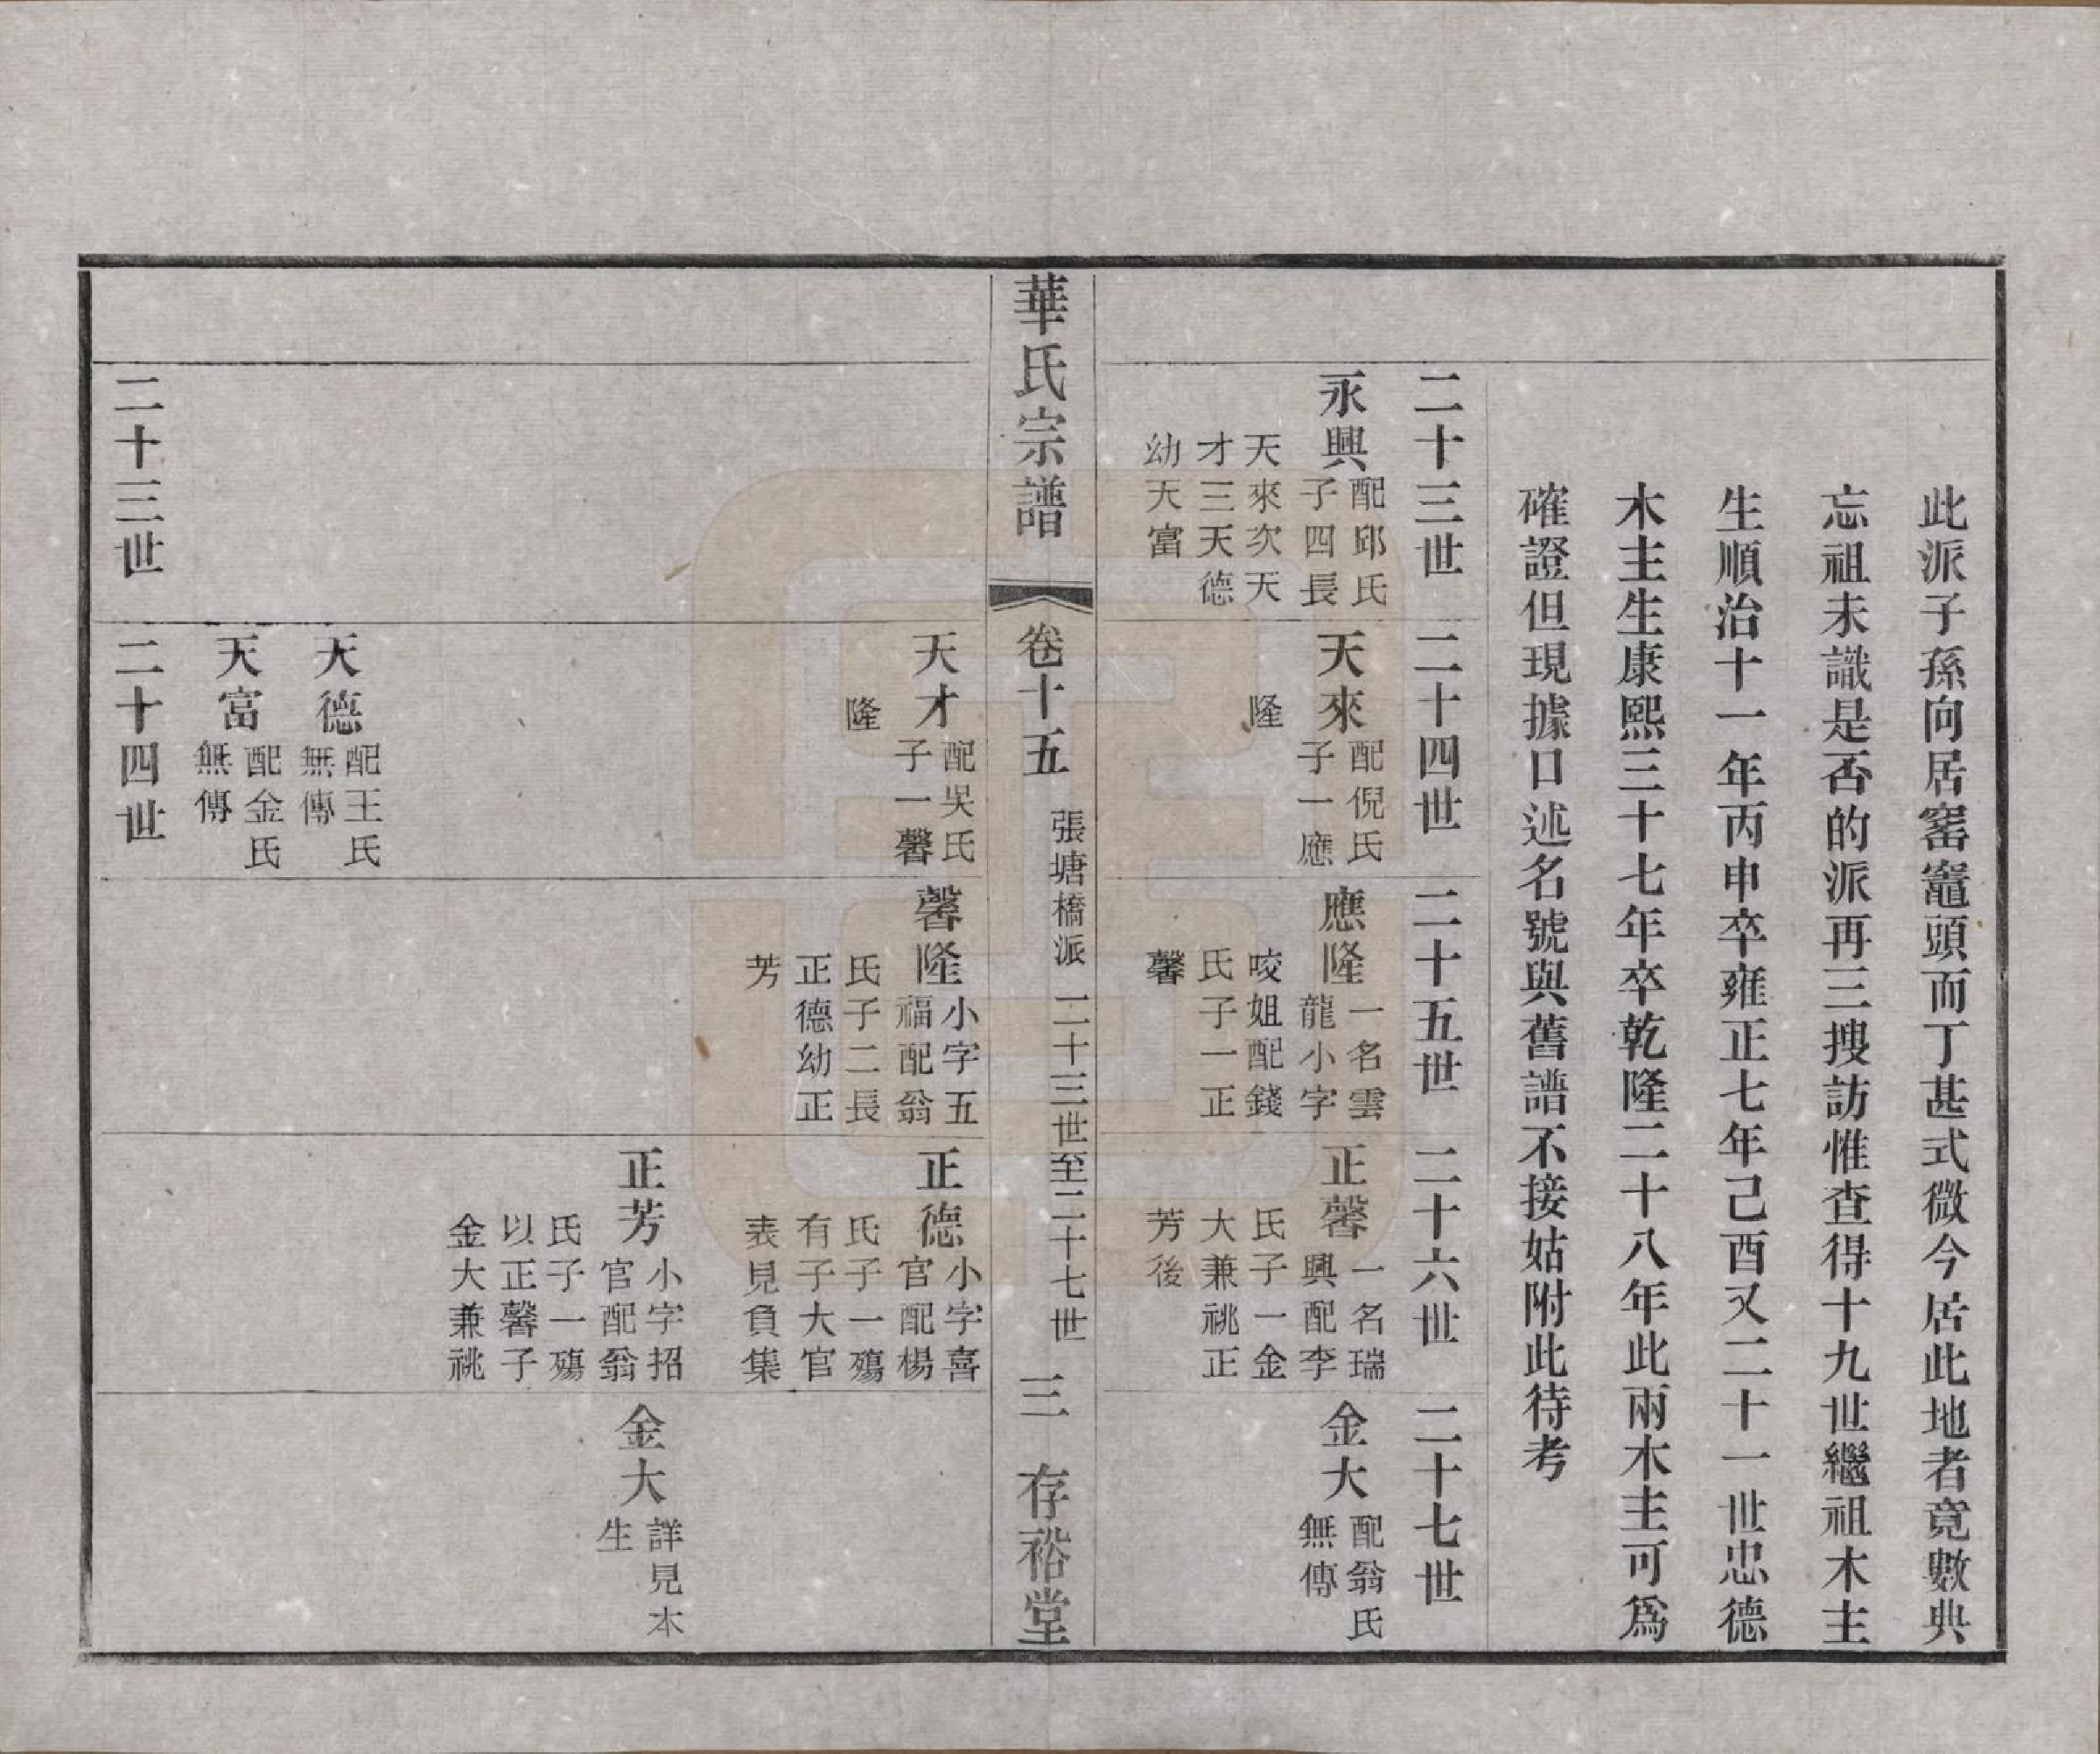 此派子孫向居窰竈頭而丁甚式微今居此地者竟數典
忘祖未識是否的派再三搜訪惟查得十九世繼祖木主
生順治十一年丙申卒雍正七年己酉又二十一世忠德
木主生康熙三十七年卒乾隆二十八年此兩木主可爲
確證但現據口述名號與舊譜不接姑附此待考
二十三世
二十四世
二十五世
二十六世
二十七世
永興
配邱氏
子四長
天來次天
才三天德
幼天富
天來
配倪氏
子一應
隆
應隆
一名雲
龍小字
咬姐配錢
氏子一正
馨
正馨
一名瑞
興配李
氏子一金
大兼祧正
芳後
金大
配翁氏
無傳
華氏宗譜
卷十五
張塘橋派
二十三世至二十七世
三
存裕堂
天才
配吳氏
子一馨
隆
馨隆
小字五
福配翁
氏子二長
正德幼正
芳
正德
小字喜
官配楊
氏子一殤
有子大官
表見負集
正芳
小字招
官配翁
氏子一殤
以正馨子
金大兼祧
金大
詳見本
生
天德
配王氏
無傳
天富
配金氏
無傳
二十三世
二十四世